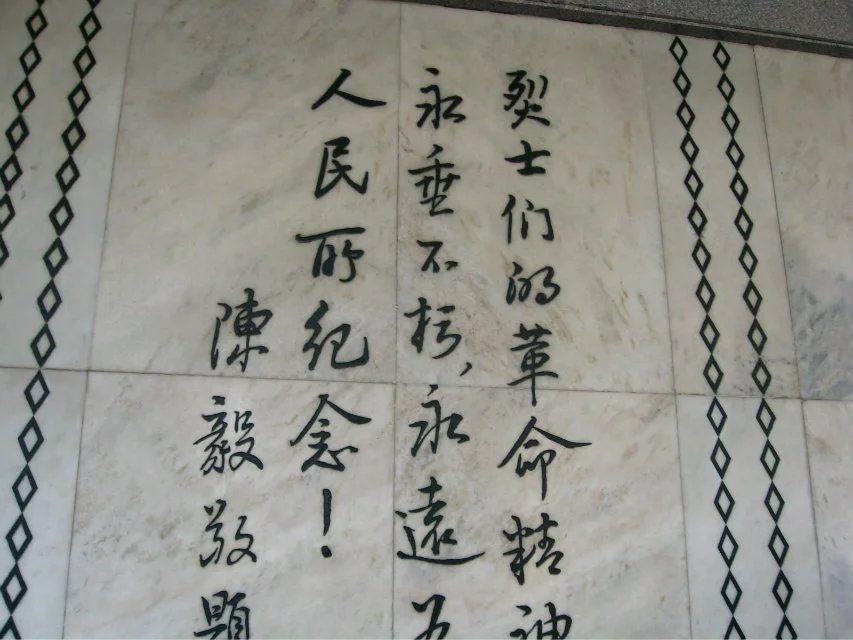 烈士们的革命精神
永垂不朽，永遠为
人民所纪念！
陳毅敬題